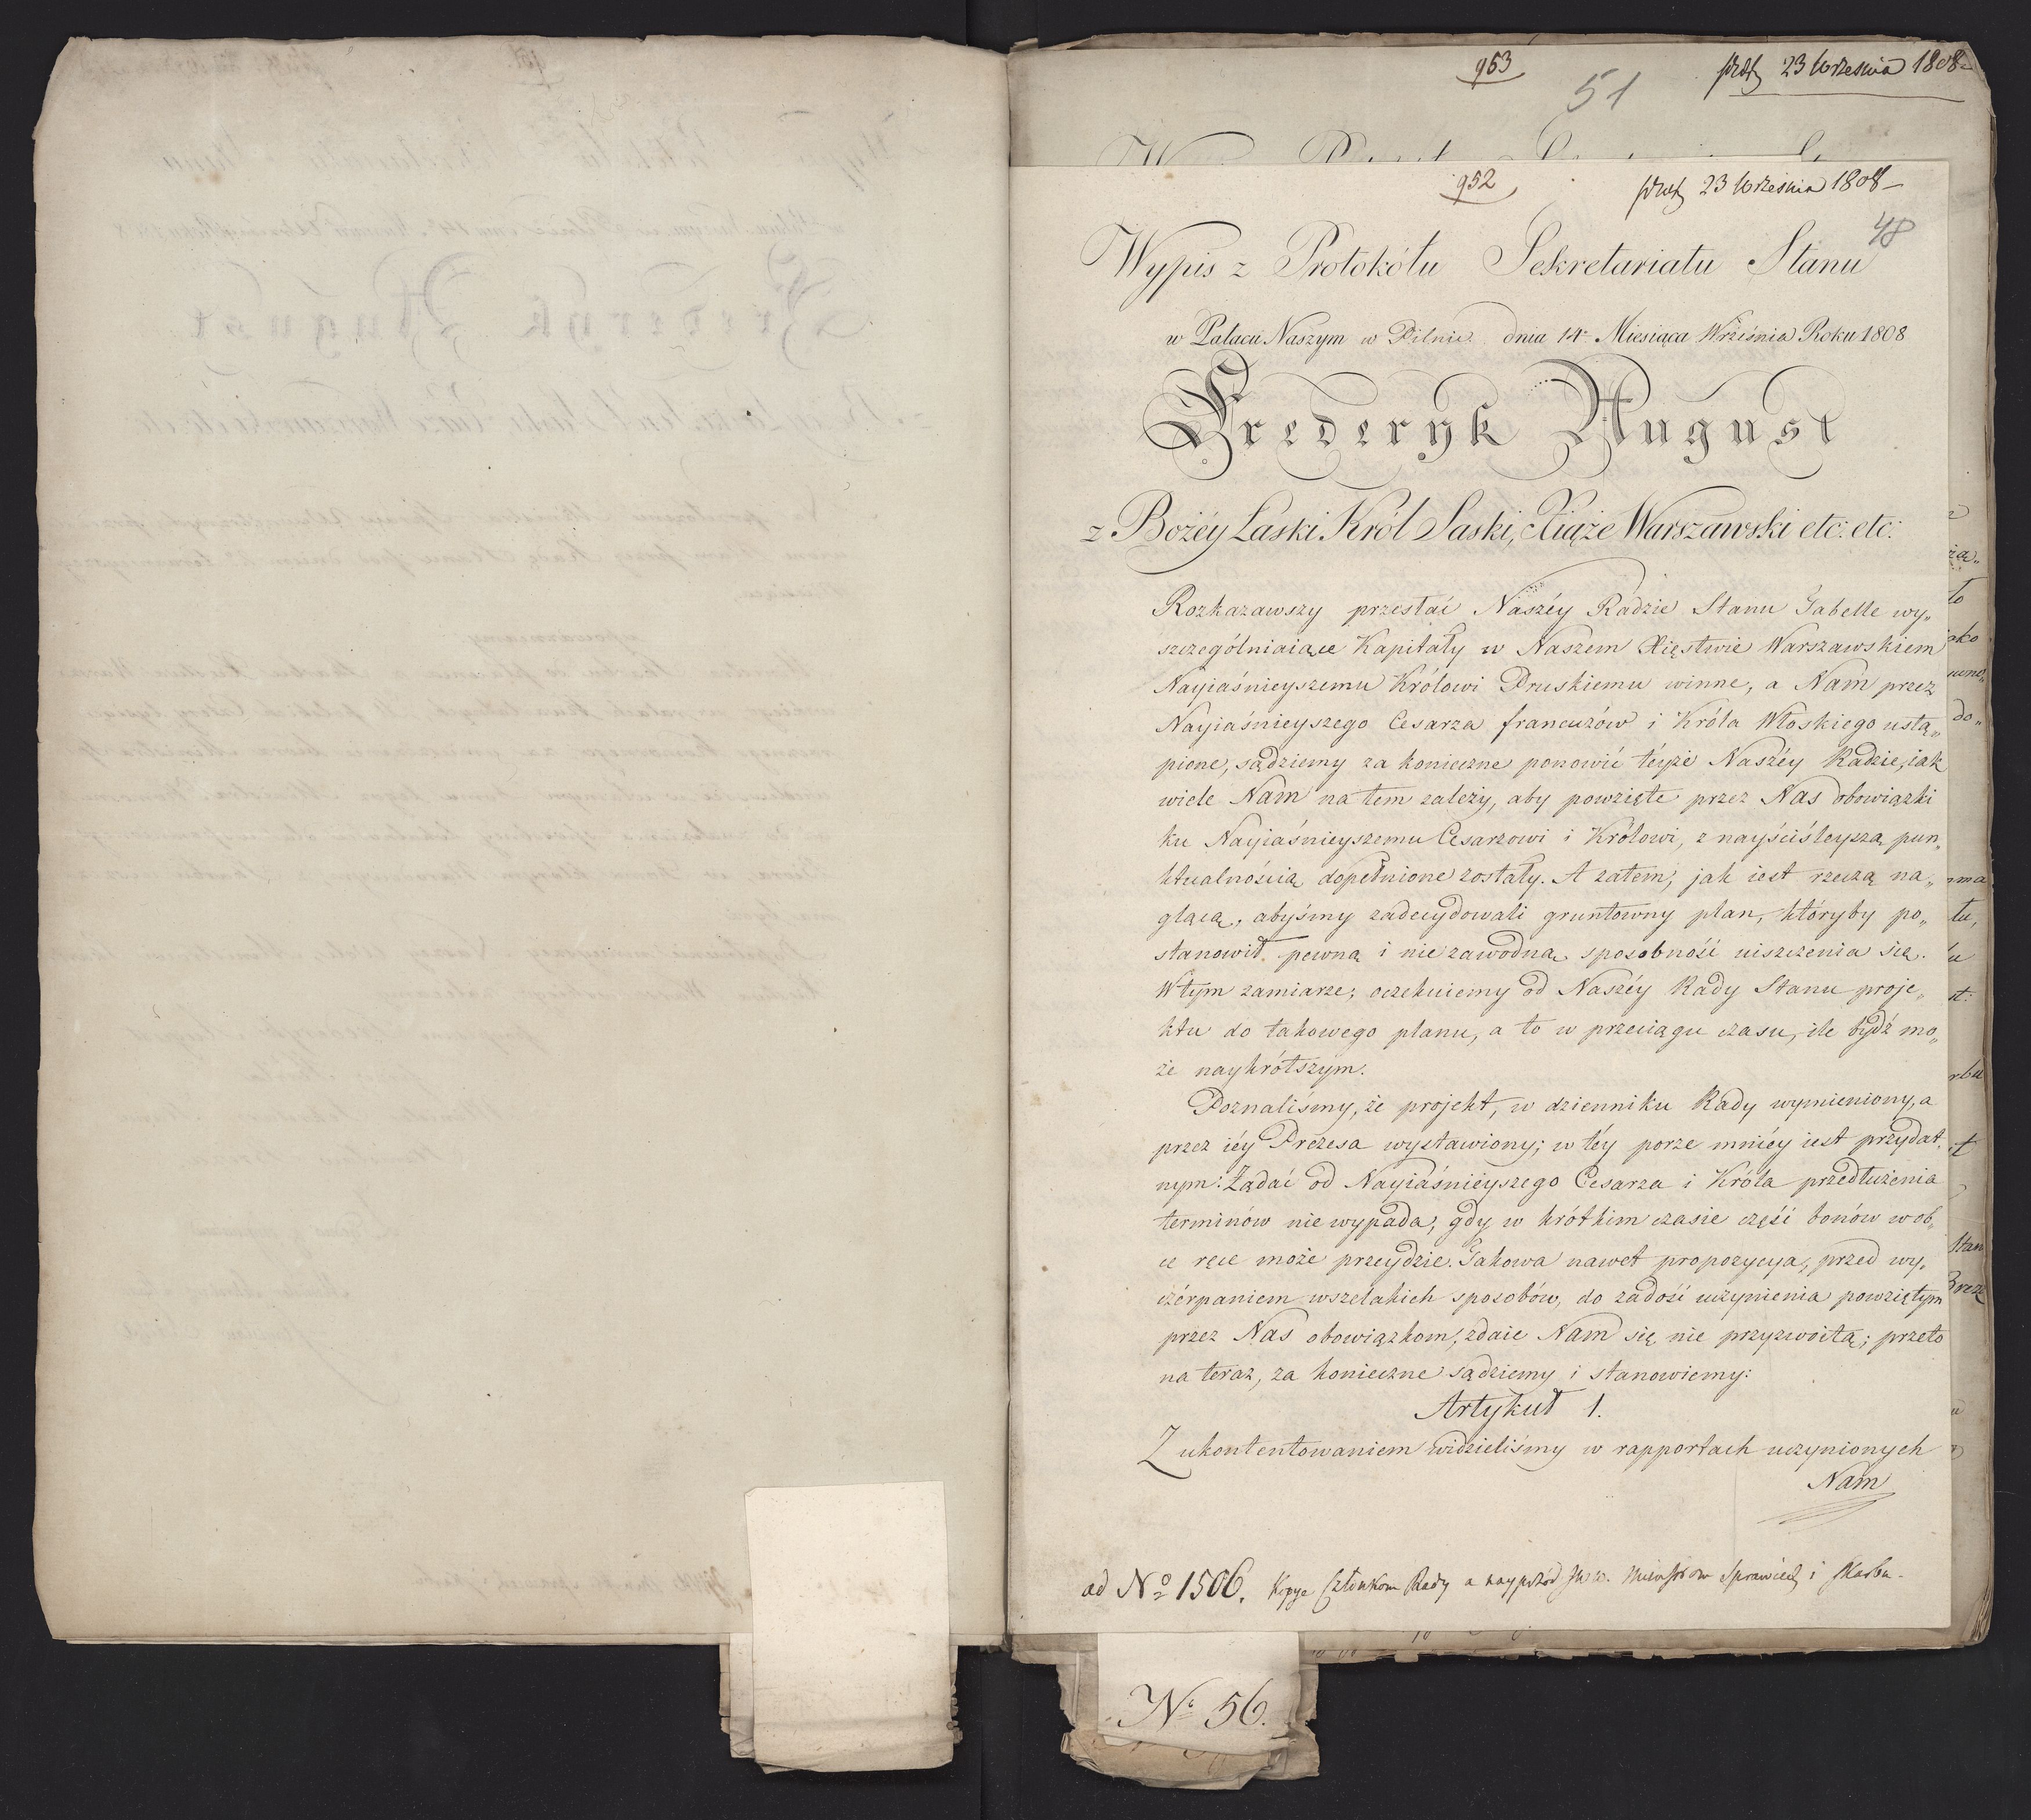 963
51
23 Września 1808
952
23 Września 1808
48
Wypis z Protokółu Sekretariatu Stanu
w Pałacu Naszym w Pilnic dnia 14 Miesiąca Września Roku 1808
Frederyk August
z Bożéy Łaski Król Saski, Xiąże Warszawski etc: etc:
Rozkazawszy przesłać Naszéy Radzie Stanu Tabelle wy„
szczególniaiące Kapitały w Naszem Xięstwie Warszawskiem
Nayiaśnieyszemu Królowi Pruskiemu winne, a Nam przez
Nayiaśnieyszego Cesarza francuzów i Króla Włoskiego ustą„
pione, sądziemy za konieczne ponowić téyże Naszéy Radzie, iak
wiele Nam na tem zależy, aby powzięte przez Nas obowiązki
ku Nayiaśnieyszemu Cesarzowi i Królowi, z nayściśleyszą pun„
ktualnością dopełnione zostały. A zatem, jak iest rzeczą na„
glącą, abyśmy zadecydowali gruntowny plan, któryby po„
stanowił pewną i niezawodną sposobność uiszczenia się.
W tym zamiarze, oczekuiemy od Naszéy Rady Stanu proje„
ktu do takowego planu, a to w przeciągu czasu, ile bydź mo„
że naykrótszym.
Poznaliśmy, że projekt, w dzienniku Rady wymieniony, a
przez iéy Prezesa wystawiony; w téy porze mniéy iest przydat„
nym: Żądać od Nayiaśnieyszego Cesarza i Króla przedłużenia
terminów nie wypada, gdy w krótkim czasie część bonów w ob„
ce ręce może przeydzie. Takowa nawet propozycya, przed wy„
czérpaniem wszelakich sposobów, do zadość uczynienia powziętym
przez Nas obowiązkom, zdaie Nam się nie przyzwoitą; przeto
na teraz, za konieczne sądziemy i stanowiemy:
Artykuł 1.
Z ukontentowaniem widzieliśmy w rapportach uczynionych
Nam
ad No 1506. Kopye Członkom Rady a naypszód JWW. Ministrom Sprawiedl i Skarbu
No 56.